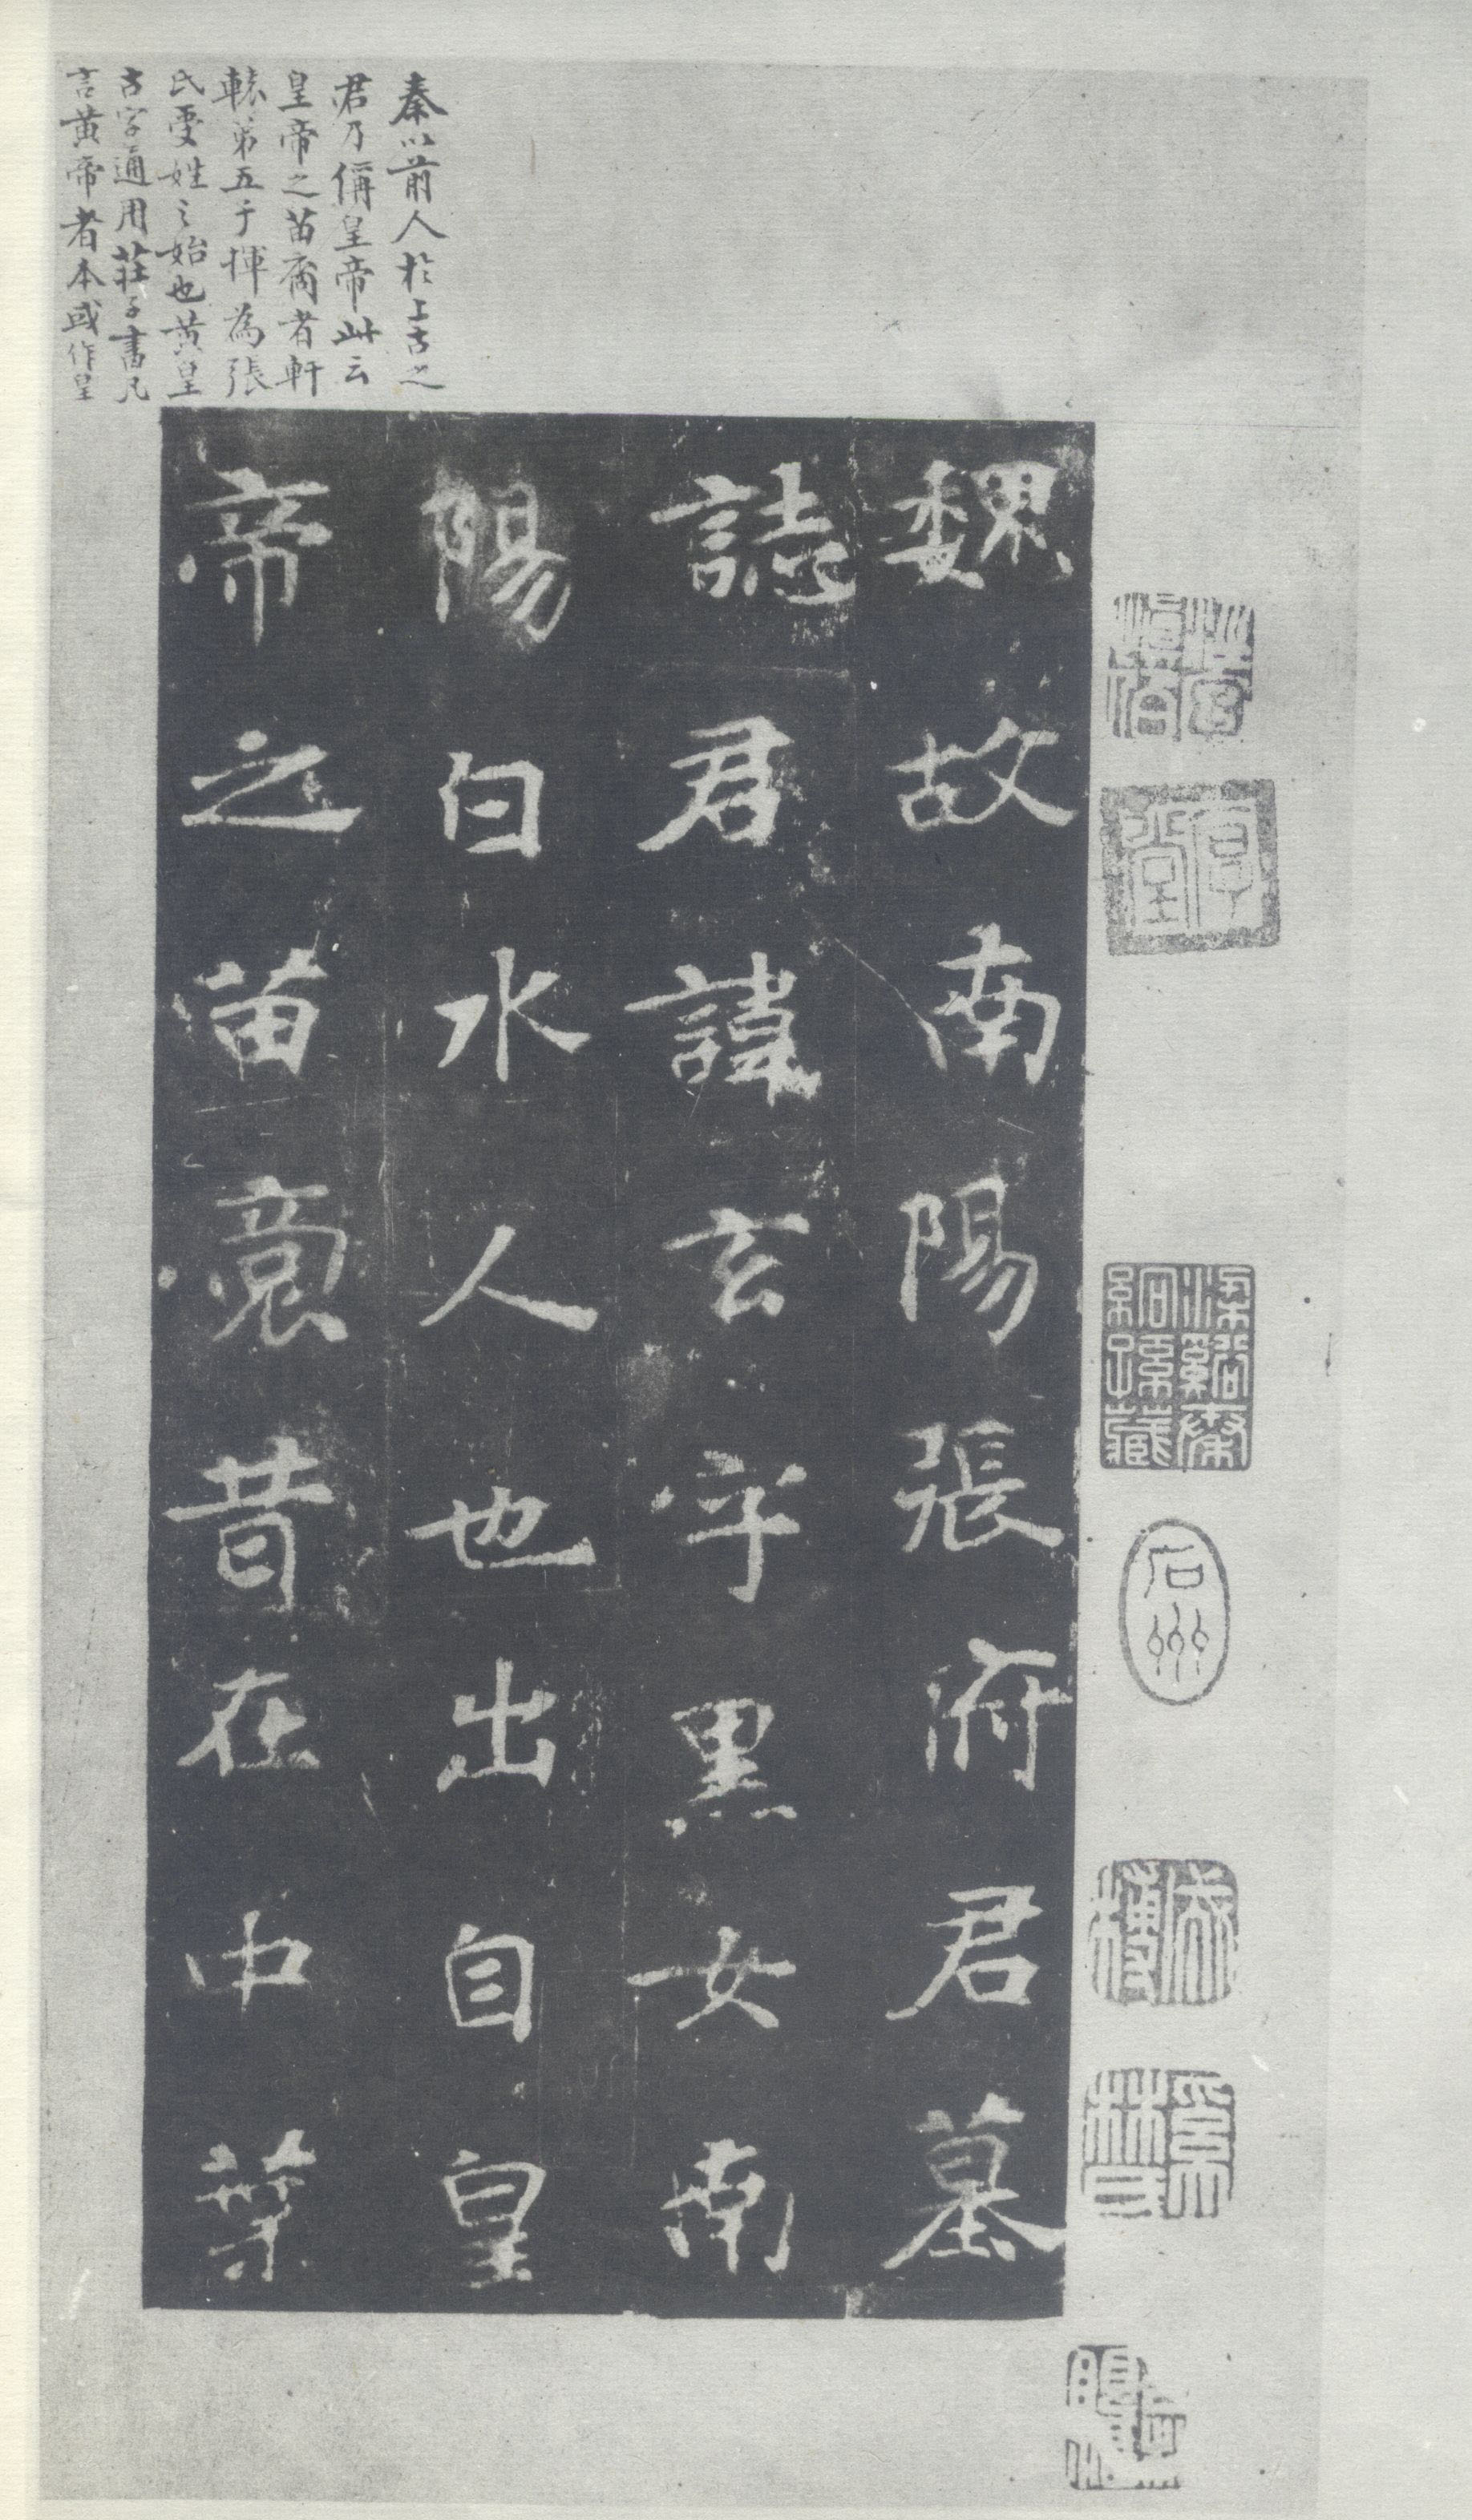 秦以前人於上古之
君乃稱皇帝此云
皇帝之苗裔者軒
轅第五子揮為張
氏受姓之始也黃皇
古字通用莊子書凡
言黃帝者本或作皇
魏故南陽張府君墓
誌君諱玄字黑女南
陽白水人也出自皇
帝之苗裔昔在中葉
石州